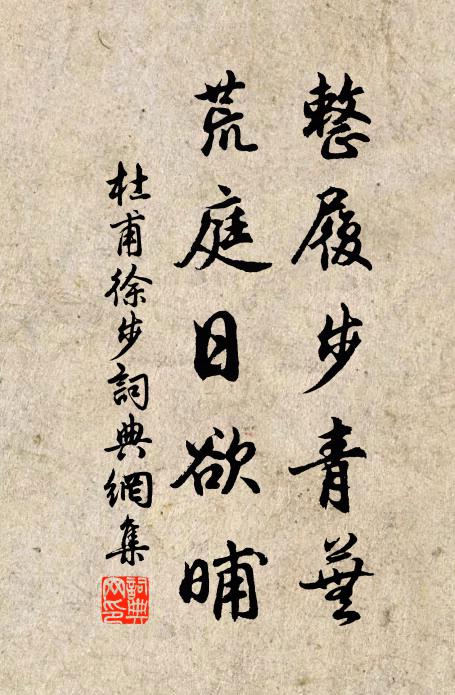 整履步青蕪
荒庭日欲晡
杜甫徐步詞典網集
詞典网印